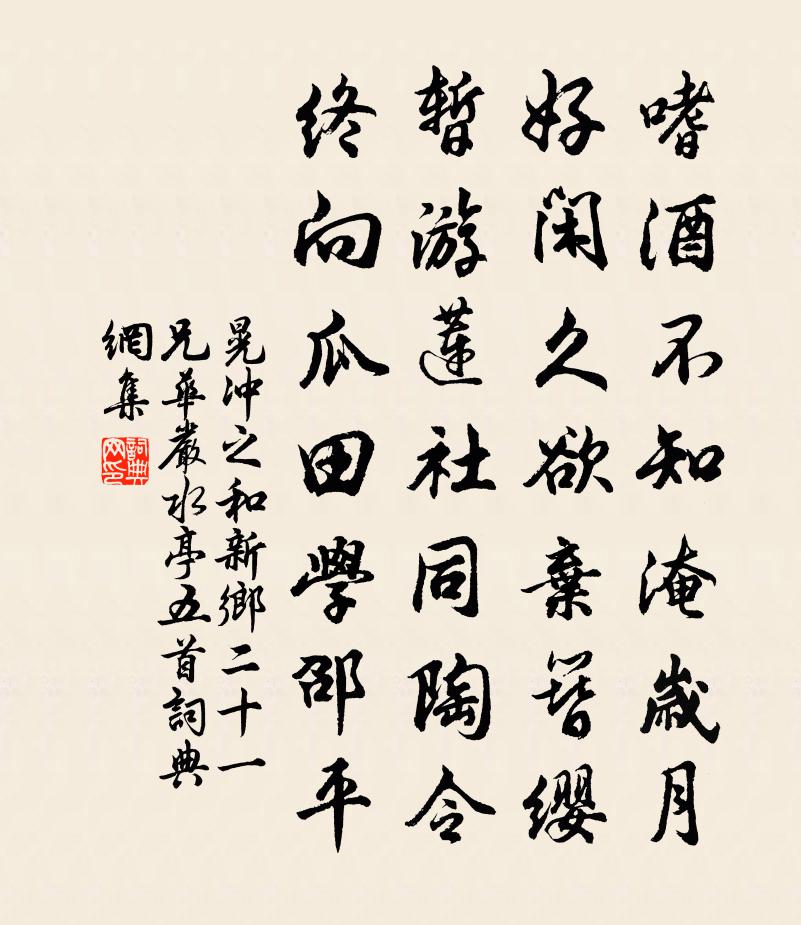 嗜酒不知淹歲月
好閑久欲棄簪纓
暫游蓮社同陶令
終向瓜田學邵平
晁沖之和新鄉二十一
兄華嚴水亭五首詞典
網集
詞典網印